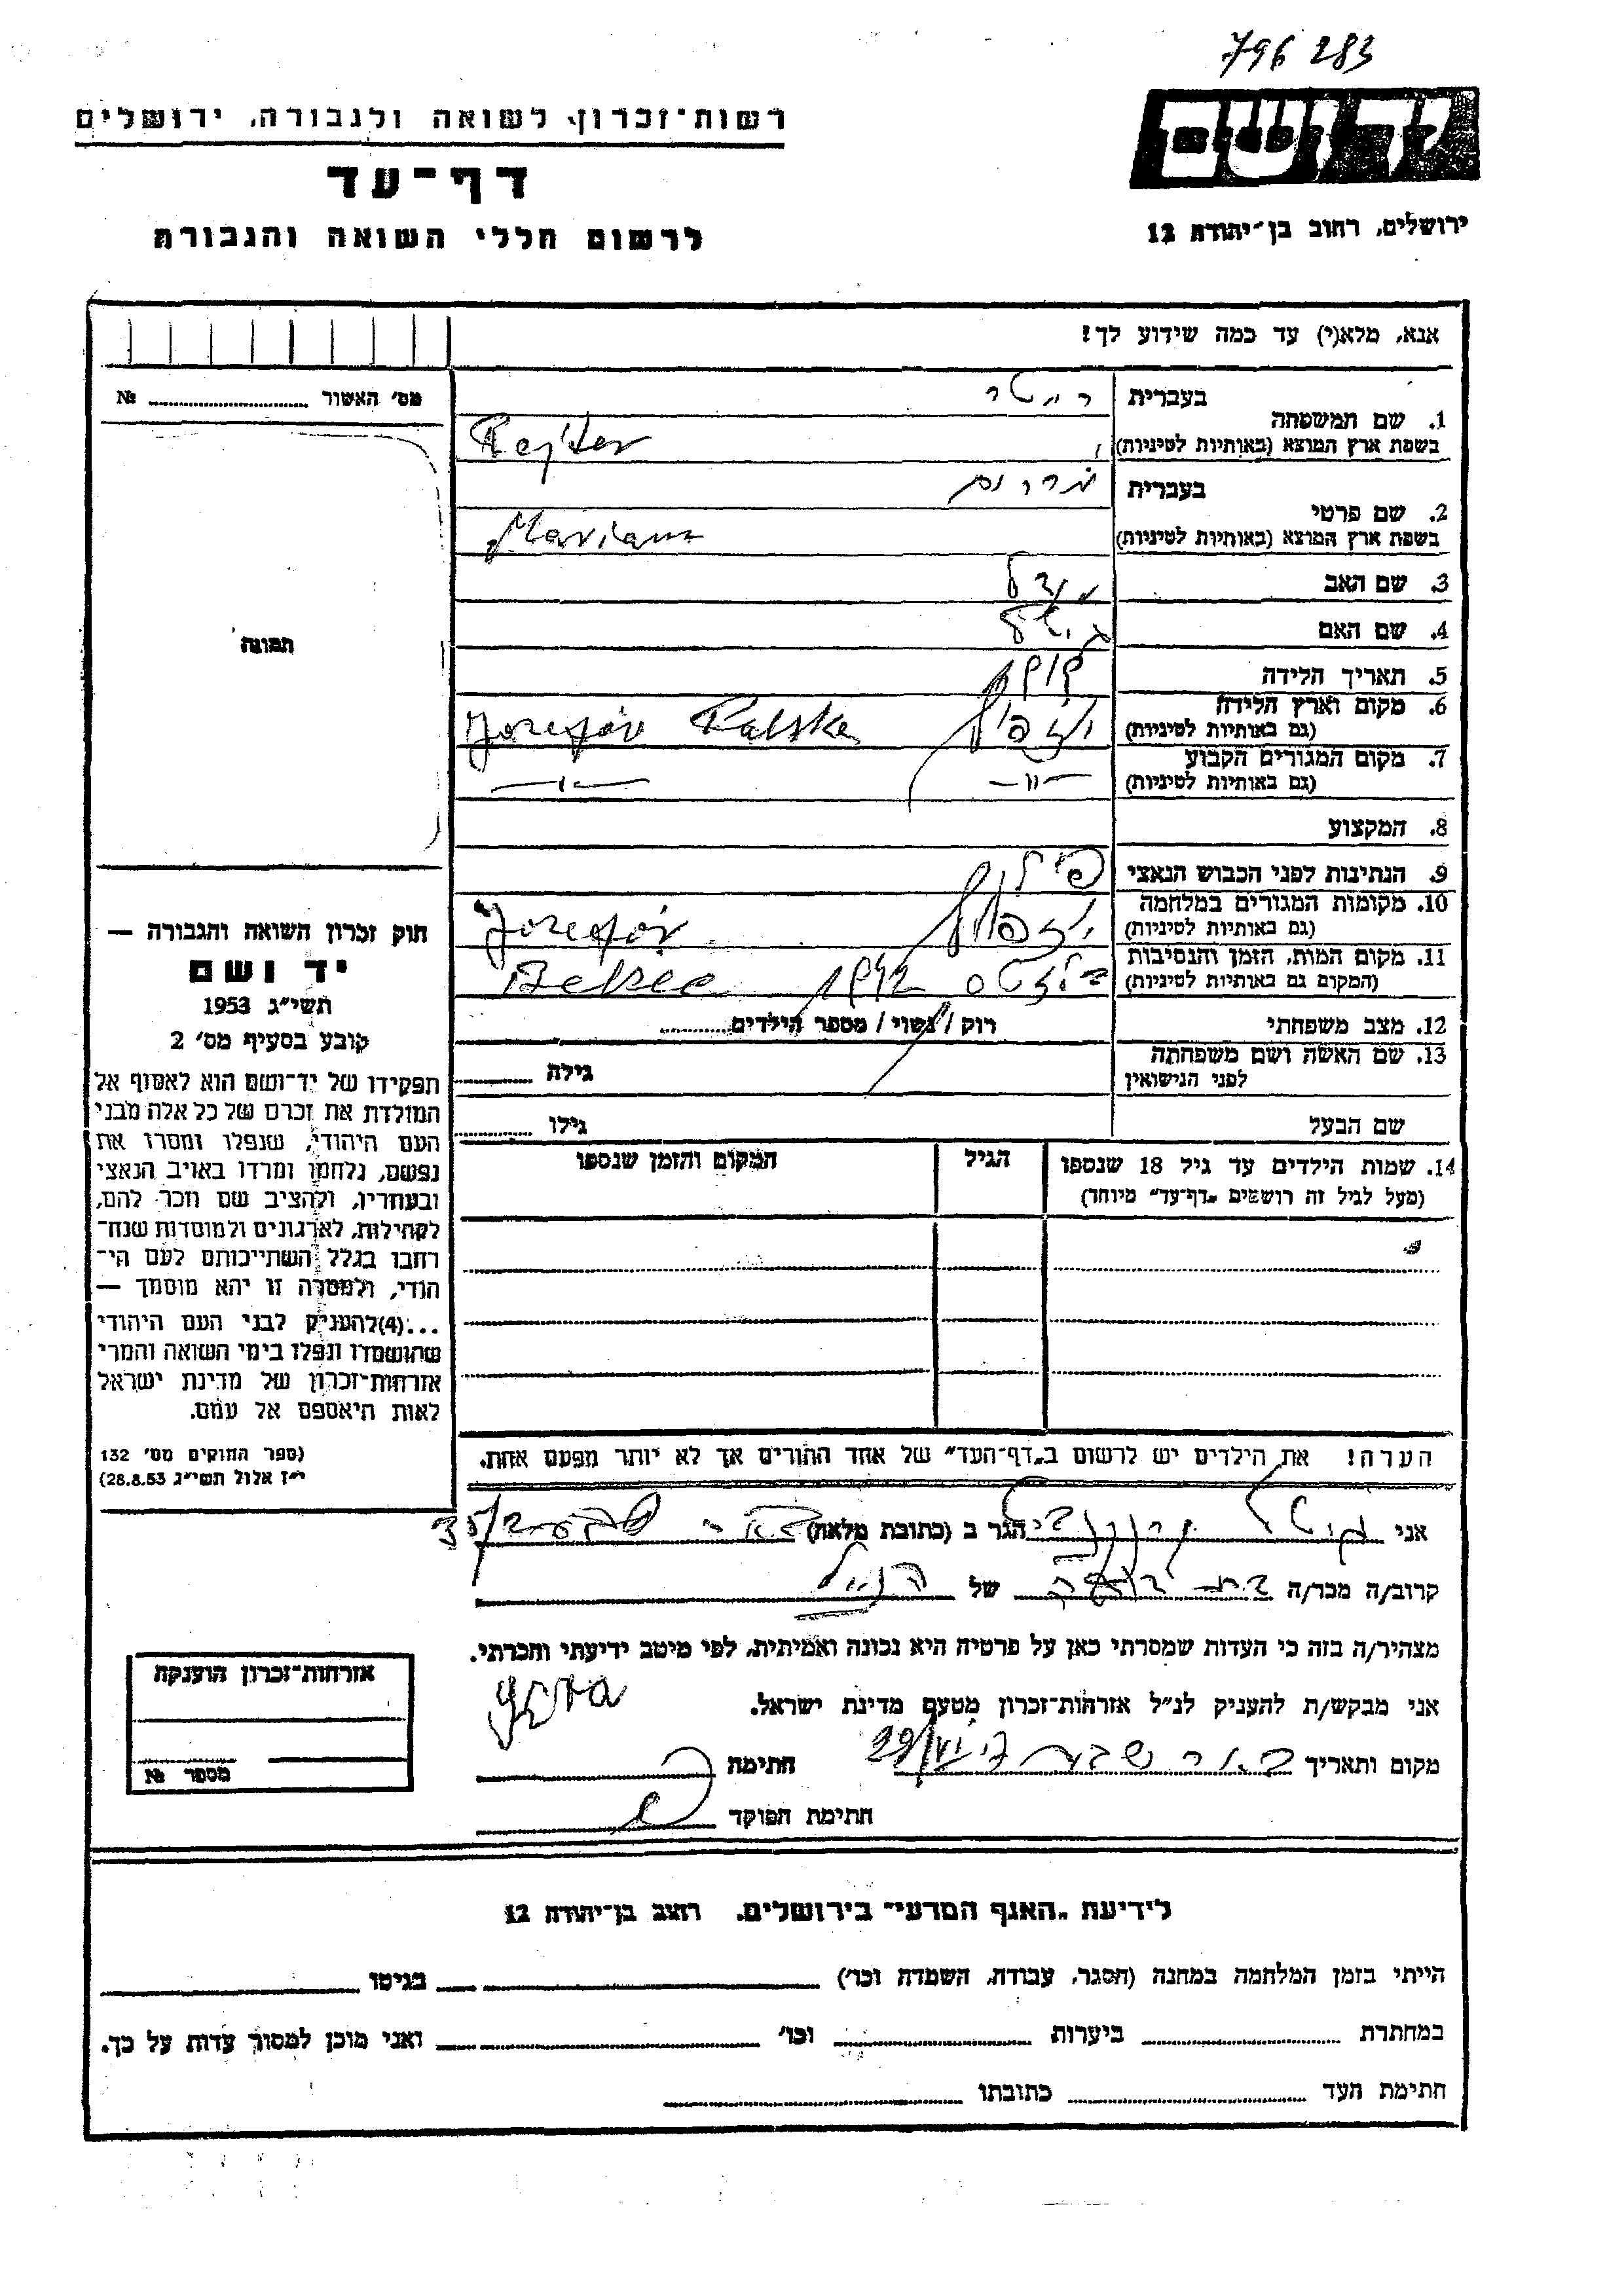 796 283
יד ושם
רשות־זכרון לשואה ולגבורה, ירושלים
דף־עד
ירושלים, רחוב בן־יהודה 12
לרשום חללי השואה והגבורה
אנא, מלא(י) עד כמה שידוע לך!
מס׳ האשור № 
תמונה
1. שם המשפחה
בעברית רייטר
בשפת ארץ המוצא (באותיות לטיניות) Rejter
2. שם פרטי
בעברית מרים
בשפת ארץ המוצא (באותיות לטיניות)
3. שם האב
4. שם האם
5. תאריך הלידה
6. מקום וארץ הלידה
(גם באותיות לטיניות) Jozefów Polska
7. מקום המגורים הקבוע
(גם באותיות לטיניות) —״— —״—
8. המקצוע
9. הנתינות לפני הכבוש הנאצי פולין
10. מקומות המגורים במלחמה
(גם באותיות לטיניות) Jozefów
11. מקום המות, הזמן והנסיבות
(המקום גם באותיות לטיניות) 1942 Belzec
12. מצב משפחתי רוק / נשוי / מספר הילדים
13. שם האשה ושם משפחתה
לפני הנישואין גילה
שם הבעל גילו
14. שמות הילדים עד גיל 18 שנספו הגיל המקום והזמן שנספו
(מעל לגיל זה רושמים „דף־עד״ מיוחד)
הערה! את הילדים יש לרשום ב„דף־העד״ של אחד ההורים אך לא יותר מפעם אחת.
חוק זכרון השואה והגבורה —
יד ושם
תשי״ג 1953
קובע בסעיף מס׳ 2
תפקידו של יד־ושם הוא לאסוף אל
המולדת את זכרם של כל אלה מבני
העם היהודי, שנפלו ומסרו את
נפשם, נלחמו ומרדו באויב הנאצי
ובעוזריו, ולהציב שם וזכר להם,
לקהילות, לארגונים ולמוסדות שנח־
רבו בגלל השתייכותם לעם הי־
הודי, ולמטרה זו יהא מוסמך —
...(4)להעניק לבני העם היהודי
שהושמדו ונפלו בימי השואה והמרי
אזרחות־זכרון של מדינת ישראל
לאות היאספם אל עמם.
(ספר החוקים מס׳ 132
י״ז אלול תשי״ג 28.8.53)
אני הגר ב (כתובת מלאה) באר־שבע
קרוב/ה מכר/ה של הנ״ל
מצהיר/ה בזה כי העדות שמסרתי כאן על פרטיה היא נכונה ואמיתית, לפי מיטב ידיעתי והכרתי.
אני מבקש/ת להעניק לנ״ל אזרחות־זכרון מטעם מדינת ישראל.
מקום ותאריך באר שבע חתימה
חתימת הפוקד
אזרחות־זכרון הוענקה
מספר №
לידיעת „האגף המדעי״ בירושלים, רחוב בן־יהודה 12
הייתי בזמן המלחמה במחנה (הסגר, עבודה, השמדה וכו׳) בגיטו
במחתרת ביערות וכו׳ ואני מוכן למסור עדות על כך.
חתימת העד כתובתו